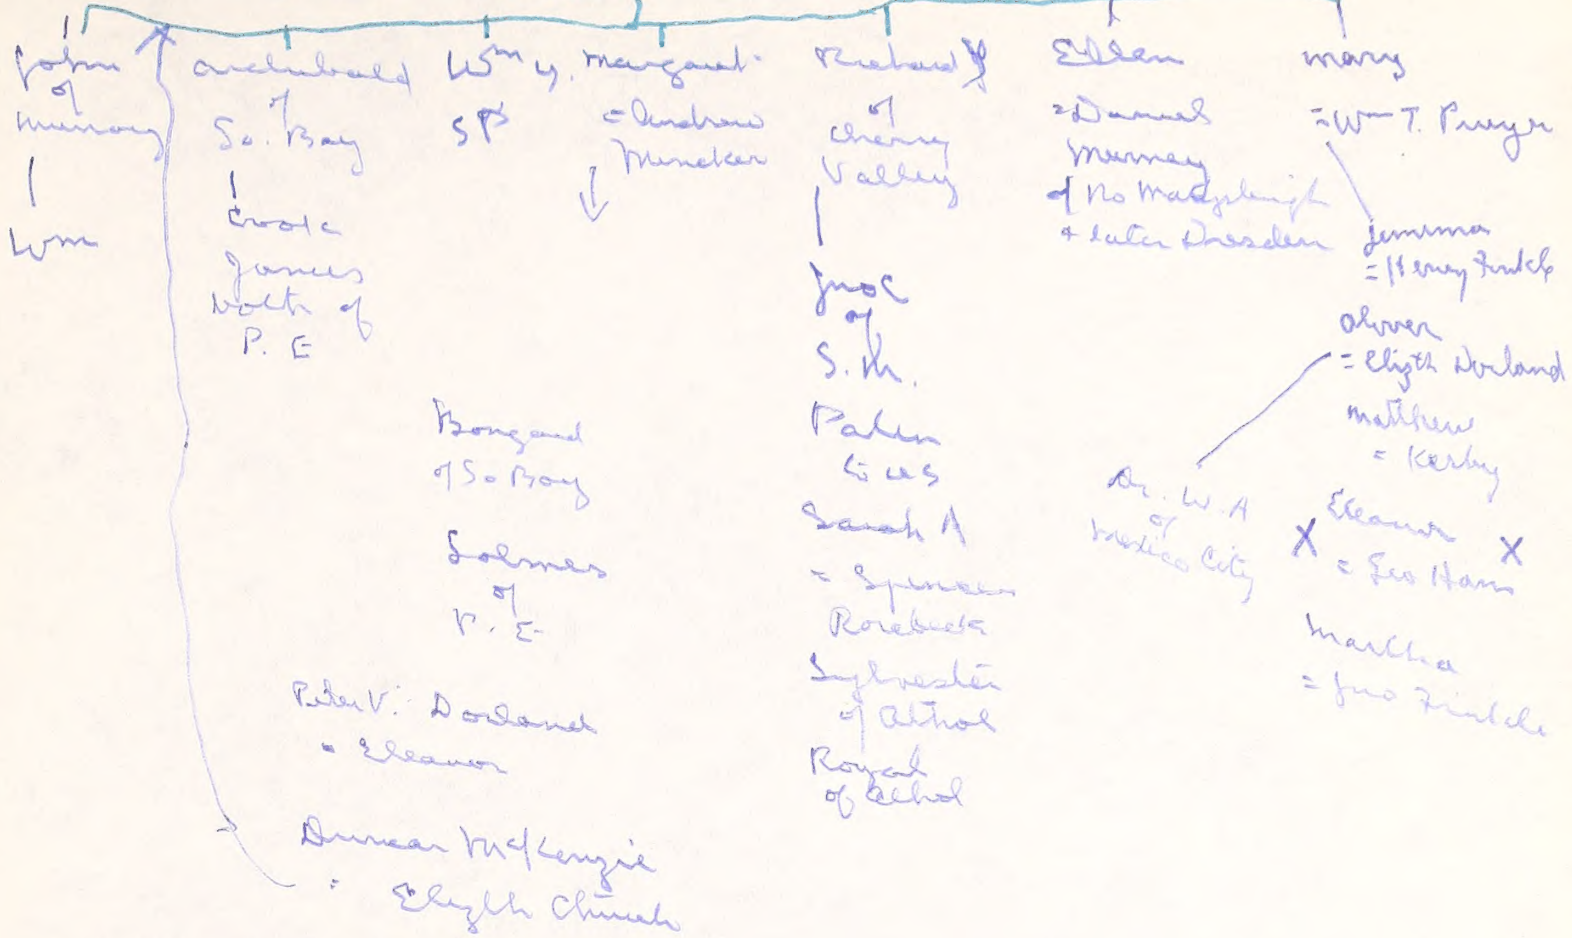 John
of
Murray
Wm
Archibald
of
So. Bay
James
both of
P. E
Wm
Margaret
= Andrew
Minaker
Bongard
of So Bay
Solmes
of
P. E
Peter V. Dorland
= Eleanor
Duncan McKenzie
= Elizth Church
Richard
of
Cherry
Valley
Jno C
of
S. M.
Palen
to US
Sarah A
= Spencer
Rosebush
Sylvester
of Athol
Royal
of Athol
Ellen
= Daniel
Murney
of No Marysburgh
+ later Dresden
Mary
= Wm T. Pruyn
Jemima
= Henry Finkle
Oliver
= Elizth Dorland
Dr. W. A
of
Mexico City
Matthew
= Kerby
X Eleanor X
= Geo Ham
Martha
= Jno Finkle